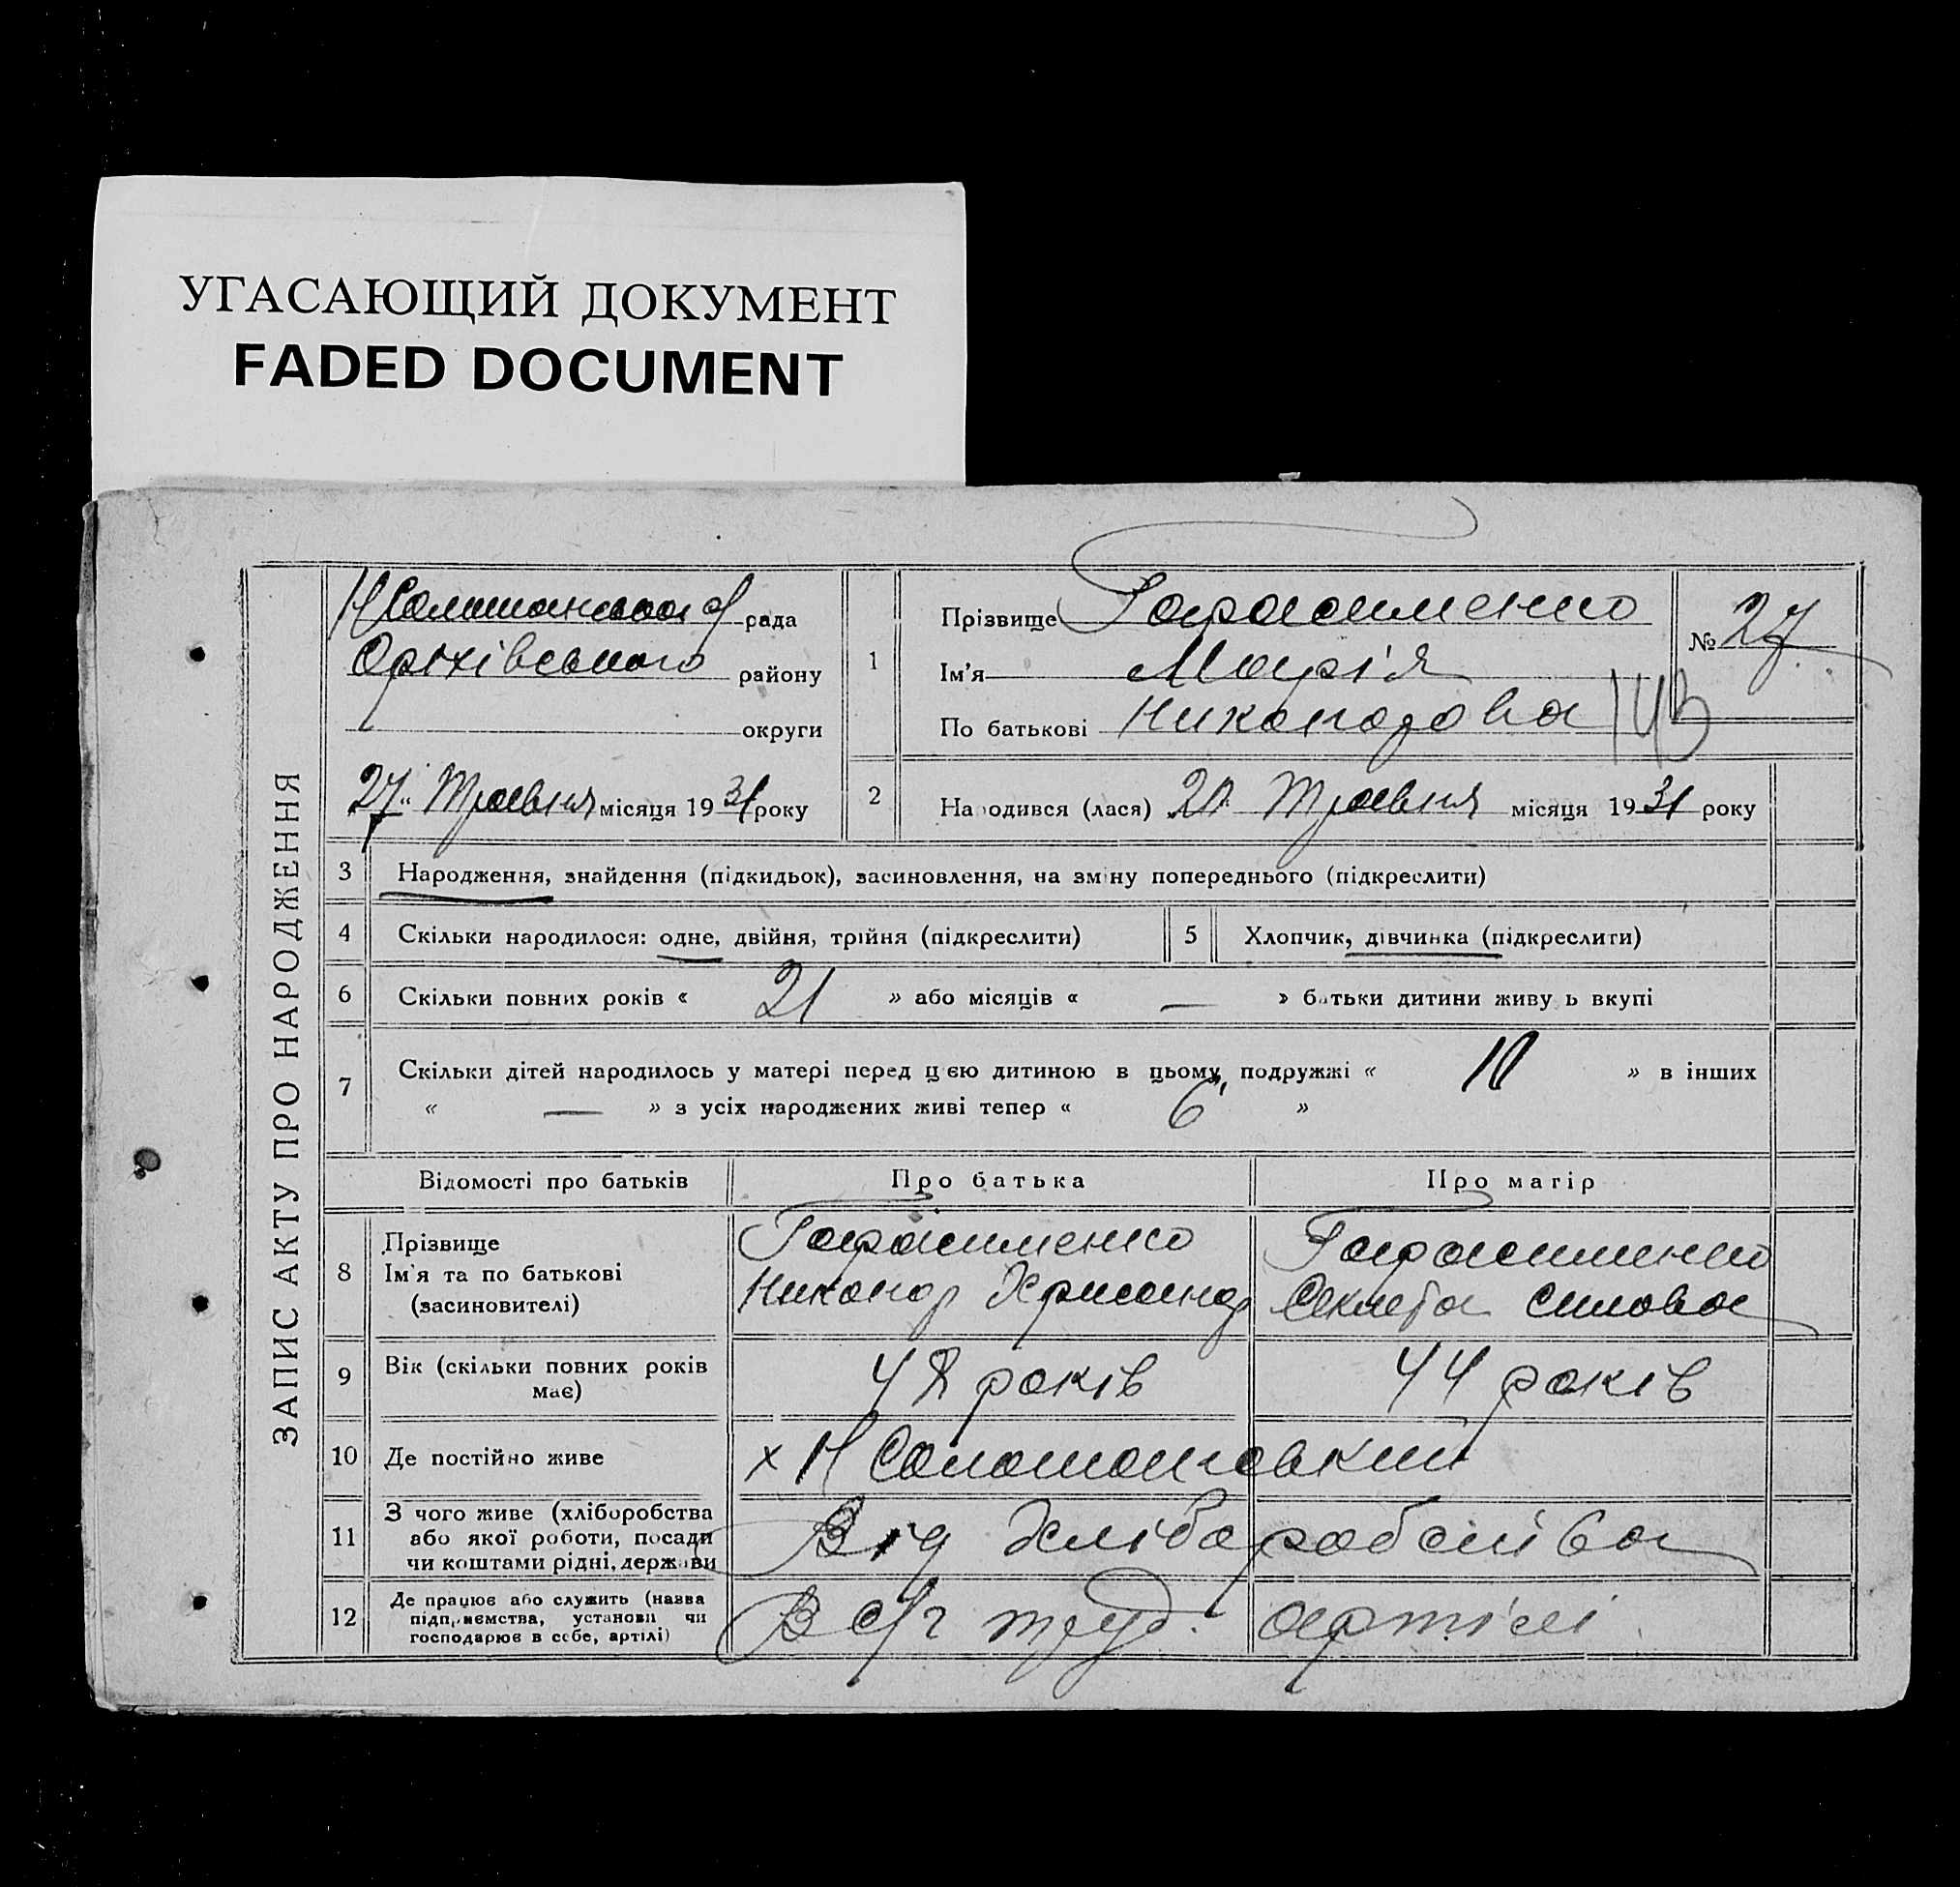 УГАСАЮЩИЙ ДОКУМЕНТ
FADED DOCUMENT
ЗАПИС АКТУ ПРО НАРОДЖЕННЯ
рада
Оріхівського району
округи
27 Травня місяця 1931 року
1
Прізвище Гарасименко
Ім'я Марія
По батькові Никонорова
№ 27
143
2
Народився (лася) 20 Травня місяця 1931 року
3 Народження, знайдення (підкидьок), засиновлення, на зміну попереднього (підкреслити)
4 Скільки народилося: одне, двійня, трійня (підкреслити) 5 Хлопчик, дівчинка (підкреслити)
6 Скільки повних років « 21 » або місяців « — » батьки дитини живуть вкупі
7 Скільки дітей народилось у матері перед цією дитиною в цьому подружжі « 10 » в інших
« — » з усіх народжених живі тепер « 6 »
Відомості про батьків Про батька Про матір
8 Прізвище
Ім'я та по батькові
(засиновителі)
Гарасименко
Никонор Хрисанор
Гарасименко
Секлета Силова
9 Вік (скільки повних років
має)
48 років 44 років
10 Де постійно живе х Н Соломоновький
11 З чого живе (хліборобства
або якої роботи, посади
чи коштами рідні, держави
Від Хліборобства
12 Де працює або служить (назва
підприємства, установи чи
господарює в себе, артілі)
В с/г труд. артілі